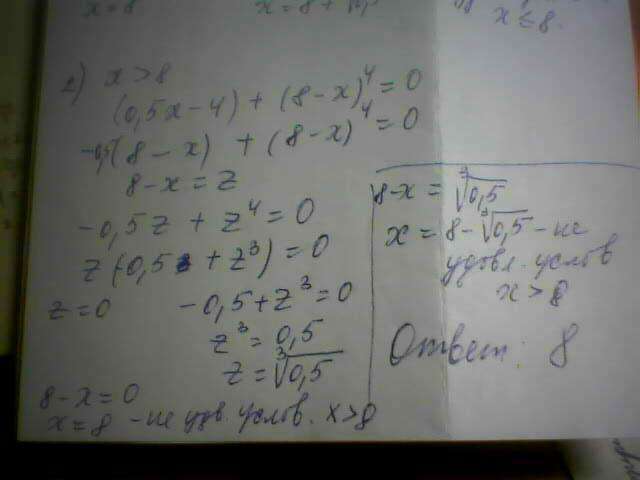 x = 8
x = 8 +
x ≤ 8.
2) x > 8
(0,5x - 4) + (8 - x)⁴ = 0
-0,5(8 - x) + (8 - x)⁴ = 0
8 - x = z
-0,5z + z⁴ = 0
z(-0,5 + z³) = 0
z = 0 -0,5 + z³ = 0
z³ = 0,5
z = ∛0,5
8 - x = 0
x = 8 - не удв. услов. x > 8
8 - x = ∛0,5
x = 8 - ∛0,5 - не
удовл. услов
x > 8
Ответ: 8